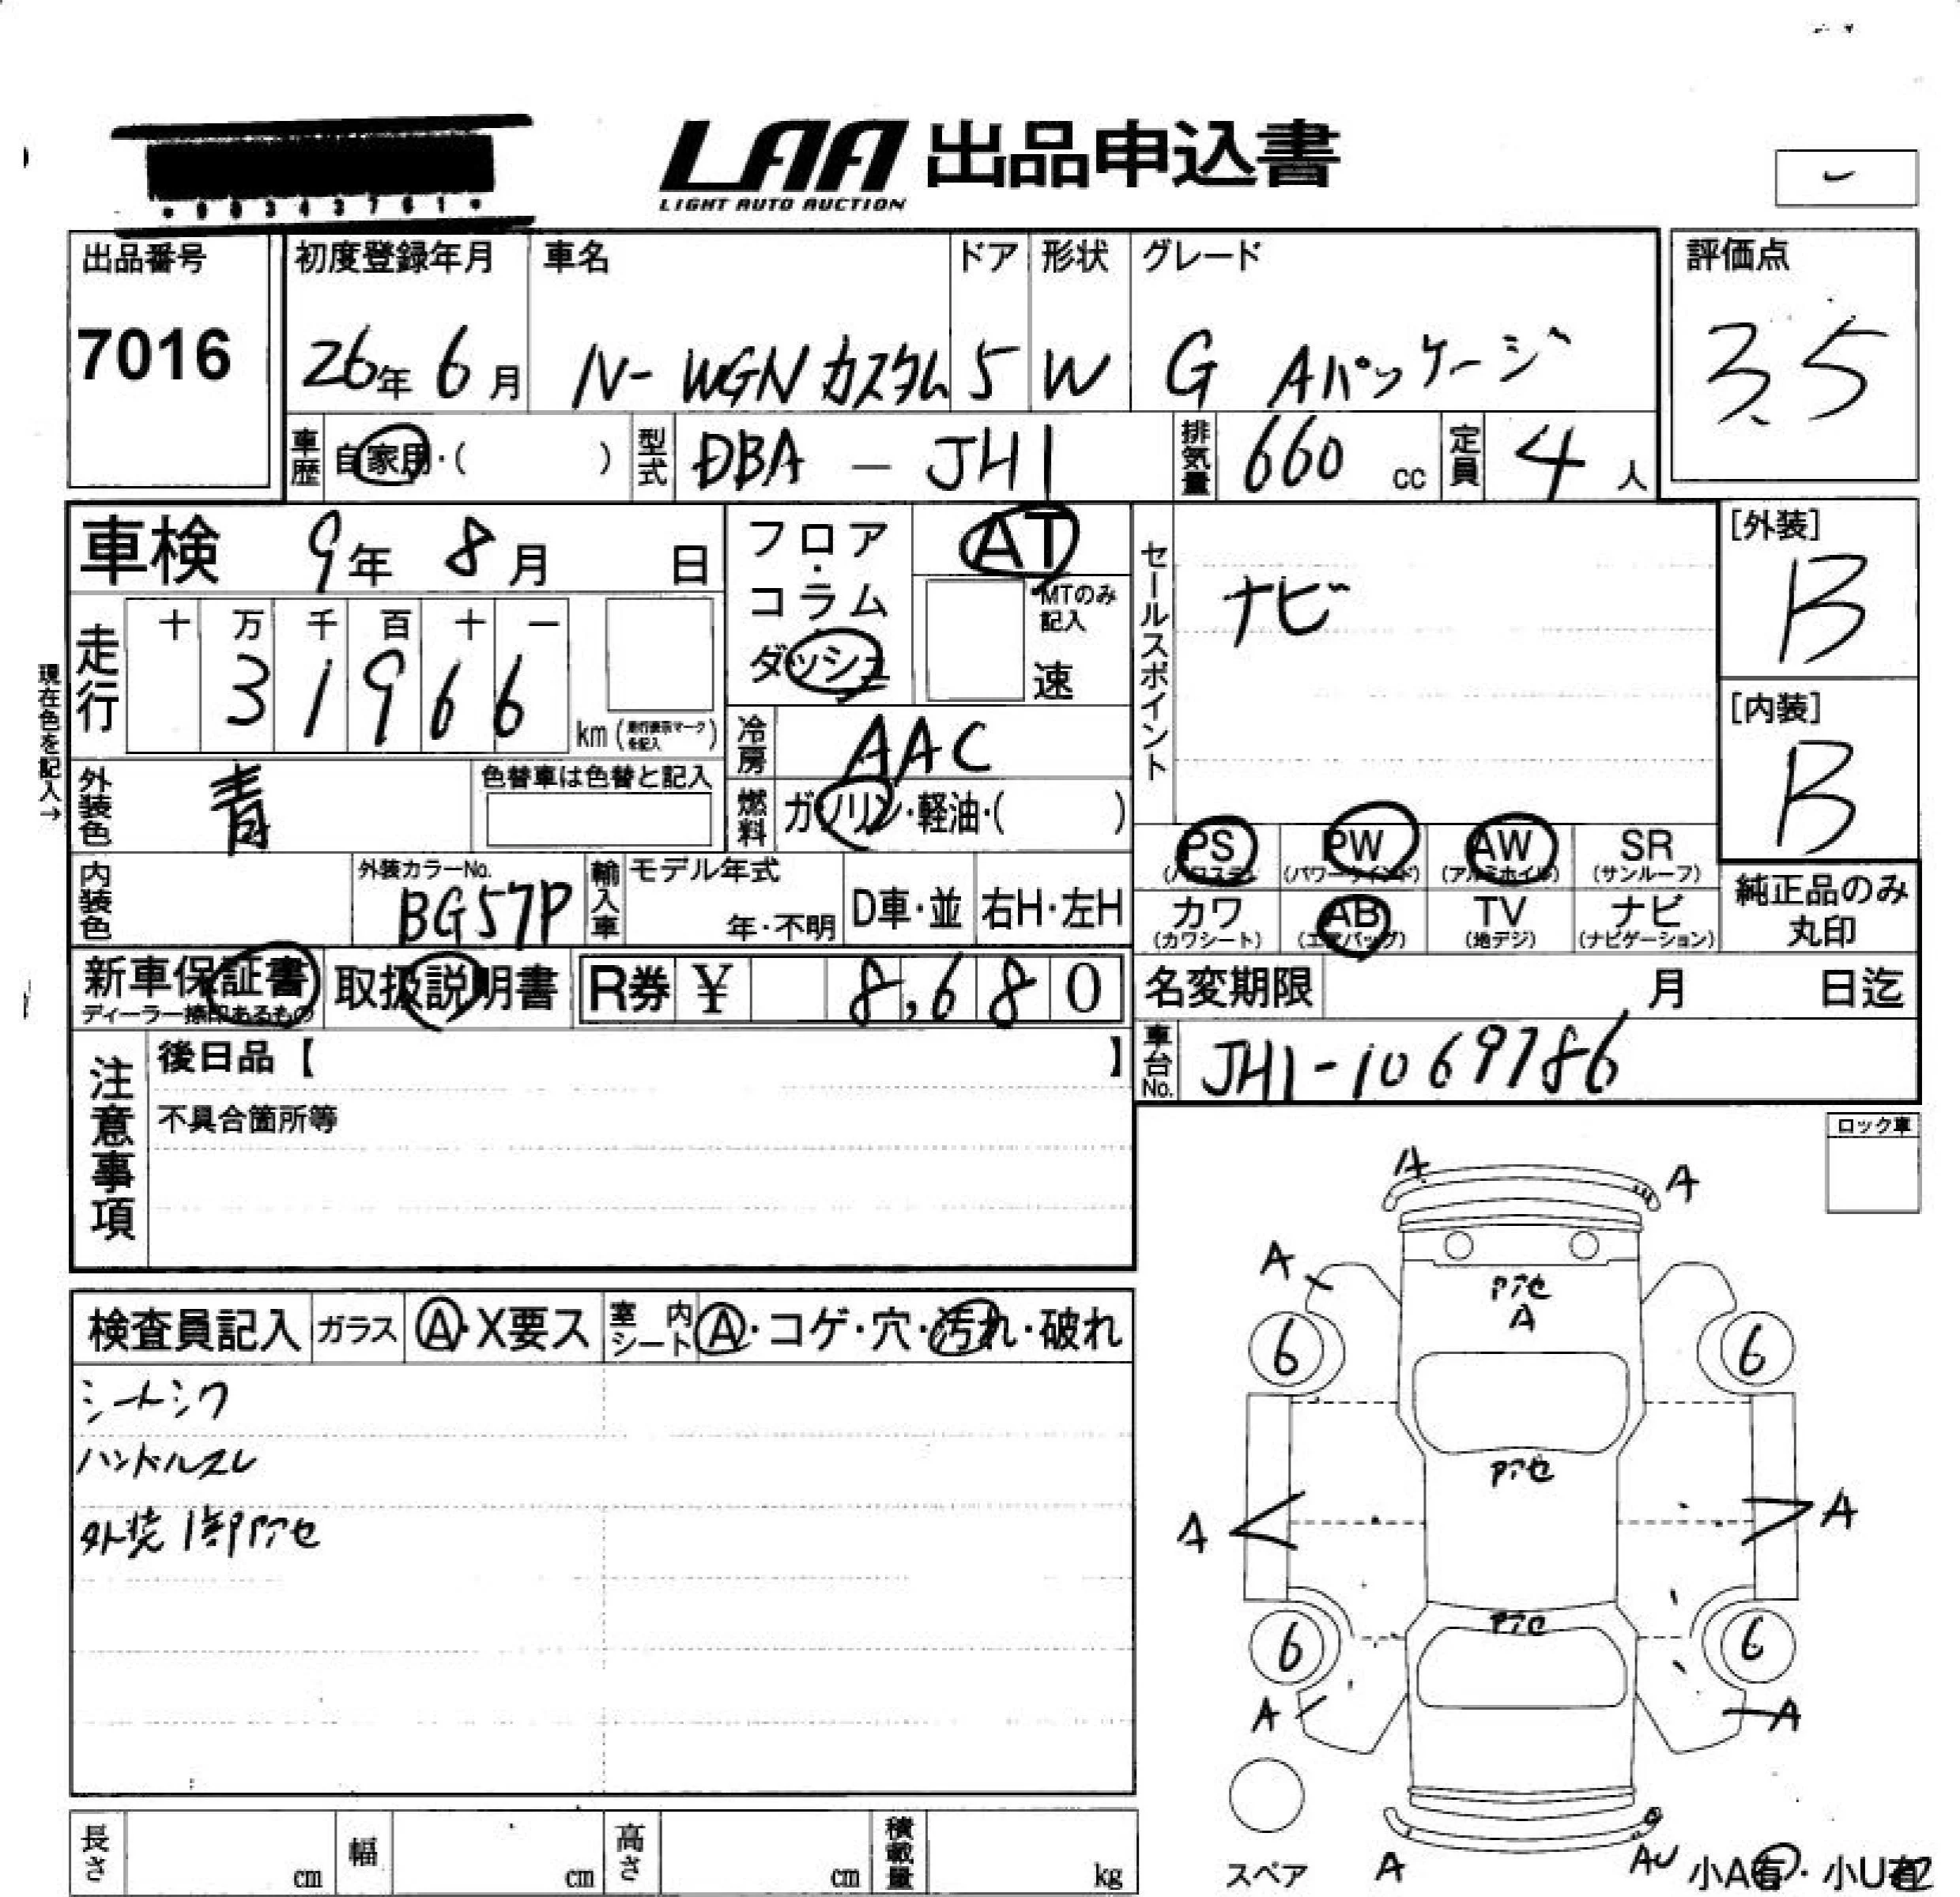 LAA 出品申込書
LIGHT AUTO AUCTION
出品番号 初度登録年月 車名 ドア 形状 グレード 評価点
7016 26年 6月 N-WGN カスタム 5 W G Aパッケージ 3.5
車歴 自家用・( ) 型式 DBA - JH1 排気量 660 cc 定員 4 人
車検 9年 8月 日 フロア・コラム・ダッシュ AT セールスポイント [外装]
B
MTのみ記入 速
ナビ
走行 十 万 千 百 十 一
3 1 9 6 6 km (走行表示マークを記入)
[内装]
B
現在色を記入→
冷房 AAC
外装色 青 色替車は色替と記入 燃料 ガソリン・軽油・( )
PS PW AW SR
(パワステ) (パワーウインド) (アルミホイル) (サンルーフ)
内装色 外装カラーNo. BG57P 輸入車 モデル年式 年・不明 D車・並 右H・左H
カワ AB TV ナビ 純正品のみ
(カワシート) (エアバッグ) (地デジ) (ナビゲーション) 丸印
新車保証書 取扱説明書 R券 ¥ 8,680 名変期限 月 日迄
ディーラー捺印あるもの
車台No. JH1-1069786
注意事項 後日品【 】
不具合箇所等
ロック車
A A
A
アセ
A
6 6
検査員記入 ガラス A・X要ス 室内シート A・コゲ・穴・汚れ・破れ
シートシワ
ハンドルスレ
外装1部アセ
アセ
A A
アセ
6 6
A A
長さ cm 幅 cm 高さ cm 積載量 kg
スペア A AU 小A有・小U有